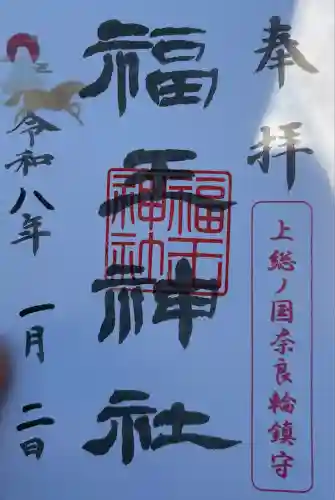 奉拝
上総ノ国奈良輪鎮守
福王神社
福王
神社
令和八年 一月二日